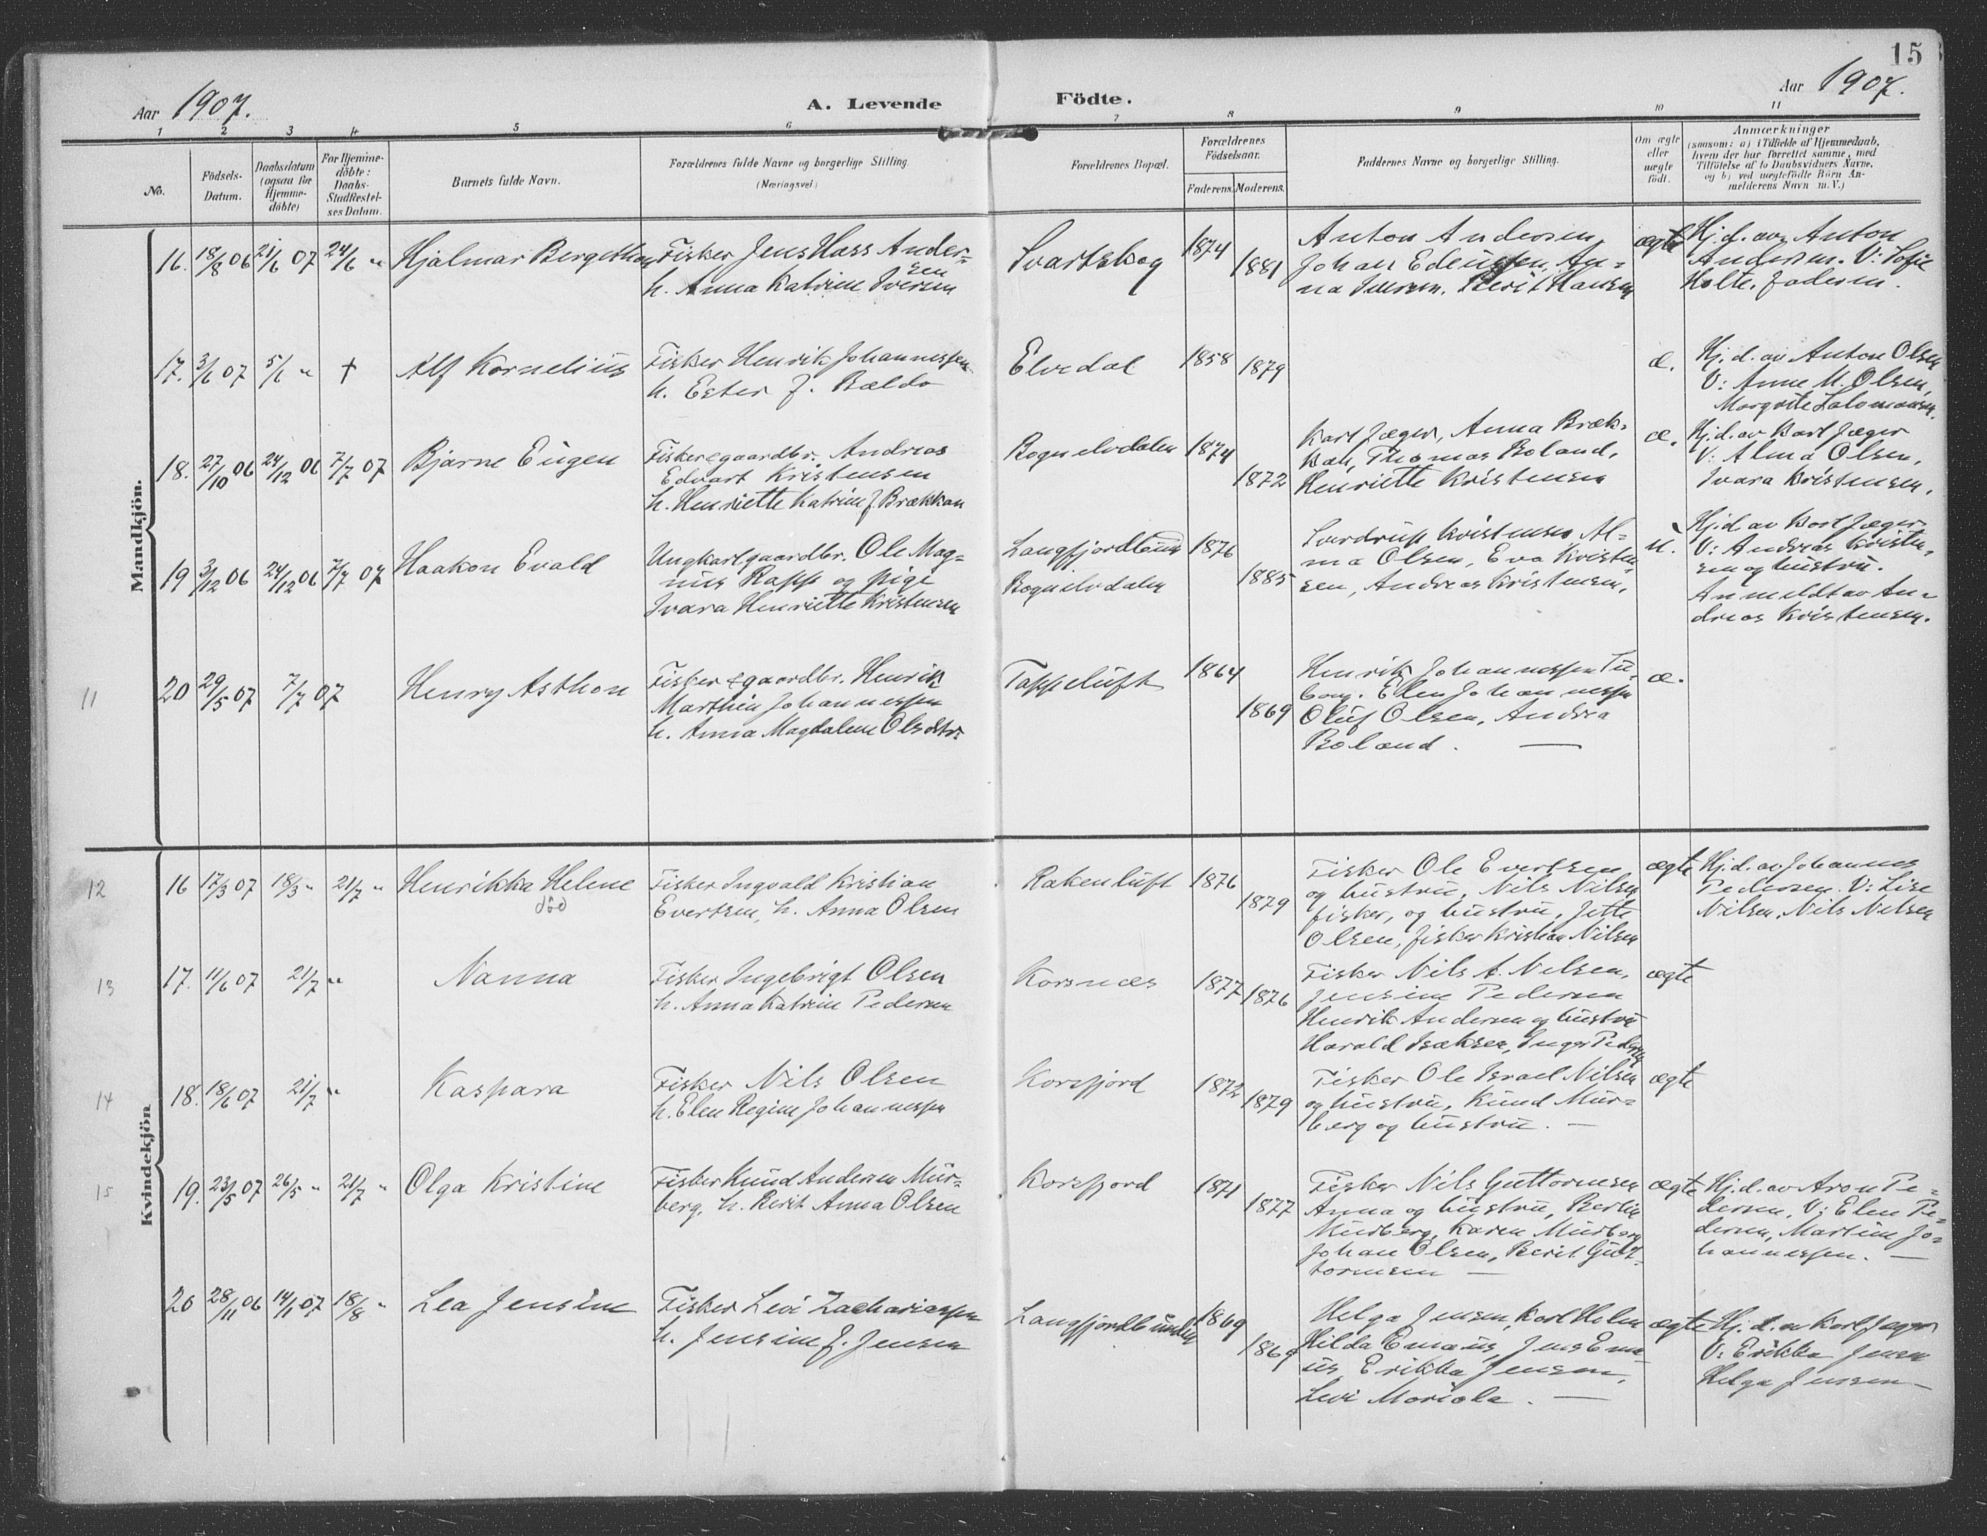 15
Aar 1907.
A. Levende Födte.
Aar 1907.
1 2 3 4 5 6 7 8 9 10 11
No.
Födsels-
Datum.
Daabsdatum
(ogsaa for
Hjemme-
döbte)
For Hjemme-
döbte:
Daabs-
Stadfæstel-
ses Datum.
Barnets fulde Navn.
Forældrenes fulde Navne og borgerlige Stilling
(Næringsvei)
Forældrenes Bopæl.
Forældrenes
Födselsaar.
Faderens.
Moderens.
Faddernes Navne og borgerlige Stilling.
Om ægte
eller
uægte
födt.
Anmærkninger
(saasom: a) i Tilfælde af Hjemmedaab,
hvem der har forrettet samme, med
Tilföielse af to Daabsvidners Navne,
og b) ved uægtefödte Börn An-
melderens Navn m. V.)
Mandkjön.
16. 18/8 06 21/6 07 24/6 "
Hjalmar Bergethon
Fisker Jens Hass Ander-
sen
h. Anna Katrine Iversen
Svartskog
1874
1881
Anton Andersen
Johan Edeussen, An-
na Iversen, Berit Hansen
ægte
Hj. d. av Anton
Andersen. V: Sofie
Holte.
17. 3/6 07 5/6 " +
Alf Kornelius
Fisker Henrik Johannessen
h. Ester f. Baldo
Elvedal
1858
1879
æ.
Hj. d. av Anton Olsen
V: Anne M. Olsen,
Margrete Salomonsen.
18. 27/10 06 24/12 06 7/7 07
Bjarne Eugen
Fisker gaardbr. Andreas
Edvart Kristensen
h. Henriette Katrine f Brækkan
Bognelvdalen
1874
1872
Karl Jæger, Anna Bræk-
kan, Thomas Boland,
Henriette Kristensen
æ.
Hj. d. av Karl Jæger
V: Alma Olsen,
Ivara Kristensen,
19 3/12 06 24/12 06 7/7 07
Haakon Evald
Ungkarl gaardbr. Ole Mag-
nus Rapp og pige
Ivara Henriette Kristensen
Langfjordbunn
Bognelvdalen
1876
1885
Sverdrup Kristensen Al-
ma Olsen, Eva Kristen-
sen, Andreas Kristensen,
u.
Hj. d. av Karl Jæger
V: Andreas Kristen-
sen og hustru.
Anmeldt av An-
dreas Kristensen.
11
20 29/5 07 7/7 07
Henry Asthon
Fisker gaardbr. Henrik
Marthin Johannessen
h. Anna Magdalene Olsdtr
Tappeluft
1864
1869
Henrik Johannessen Tu-
borg. Elen Johannessen
Oluf Olsen, Andrea
Boland. —
æ.
Kvindekjön
12
16 17/3 07 18/3 " 21/7 "
Henrikka Helene
død
Fisker Ingvald Kristian
Evertsen, h. Anna Olsen
Rakenluft
1876
1879
Fisker Ole Evertsen
og hustru, Nils Nilsen
fisker, og hustru, Jette
Olsen, fisker Kristian Nilsen
ægte
Hj. d. av Johannes
Pedersen. V: Lise
Nilsen, Nils Nilsen
13
17. 11/6 07 21/7 "
Nanna
Fisker Ingebrigt Olsen
h. Anna Katrine Pedersen
Korsnes
1877
1876
Fisker Nils A. Nilsen,
Jensine Pedersen
Henrik Andersen og hustru
Harald Isaksen, Inger Pedersen
ægte
14
18. 18/6 07 21/7 "
Kaspara
Fisker Nils Olsen
h. Elen Regine Johannessen
Korsfjord
1872
1879
Fisker Ole Israel Nilsen
og hustru, Knud Mur-
berg og hustru. —
ægte
15
19. 23/5 07 26/5 " 21/7 "
Olga Kristine
Fisker Knud Andersen Mur-
berg, h. Berit Anna Olsen
Korsfjord
1871
1877
Fisker Nils Guttormsen
Anna og hustru,
Murberg, Karen Murberg
Johan Olsen, Berit Gut-
tormsen —
ægte
Hj. d. av Aron Pe-
dersen, V: Elen Pe-
dersen, Martine Jo-
hannessen. —
20 28/11 06 14/1 07 18/8 "
Lea Jensine
Fisker Levi Zachariassen
h. Jensine f. Jensen
Langfjordbunden
1869
1869
Helga Jensen, Karl Holm
Hilda Emaus, Jens Ema-
us Erikka Jensen,
Levi Mariala. —
ægte
Hj. d. av Karl Jæger
V: Erikka Jensen
Helga Jensen —